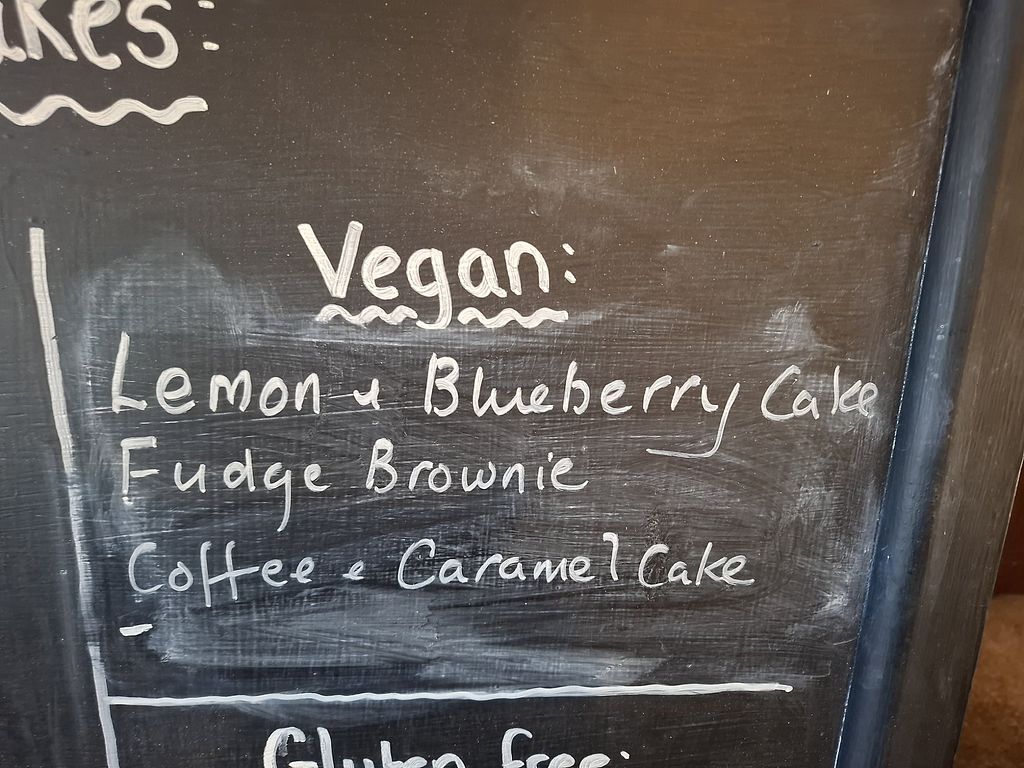 akes:
Vegan:
Lemon & Blueberry Cake
Fudge Brownie
Coffee & Caramel Cake
-
Gluten free: